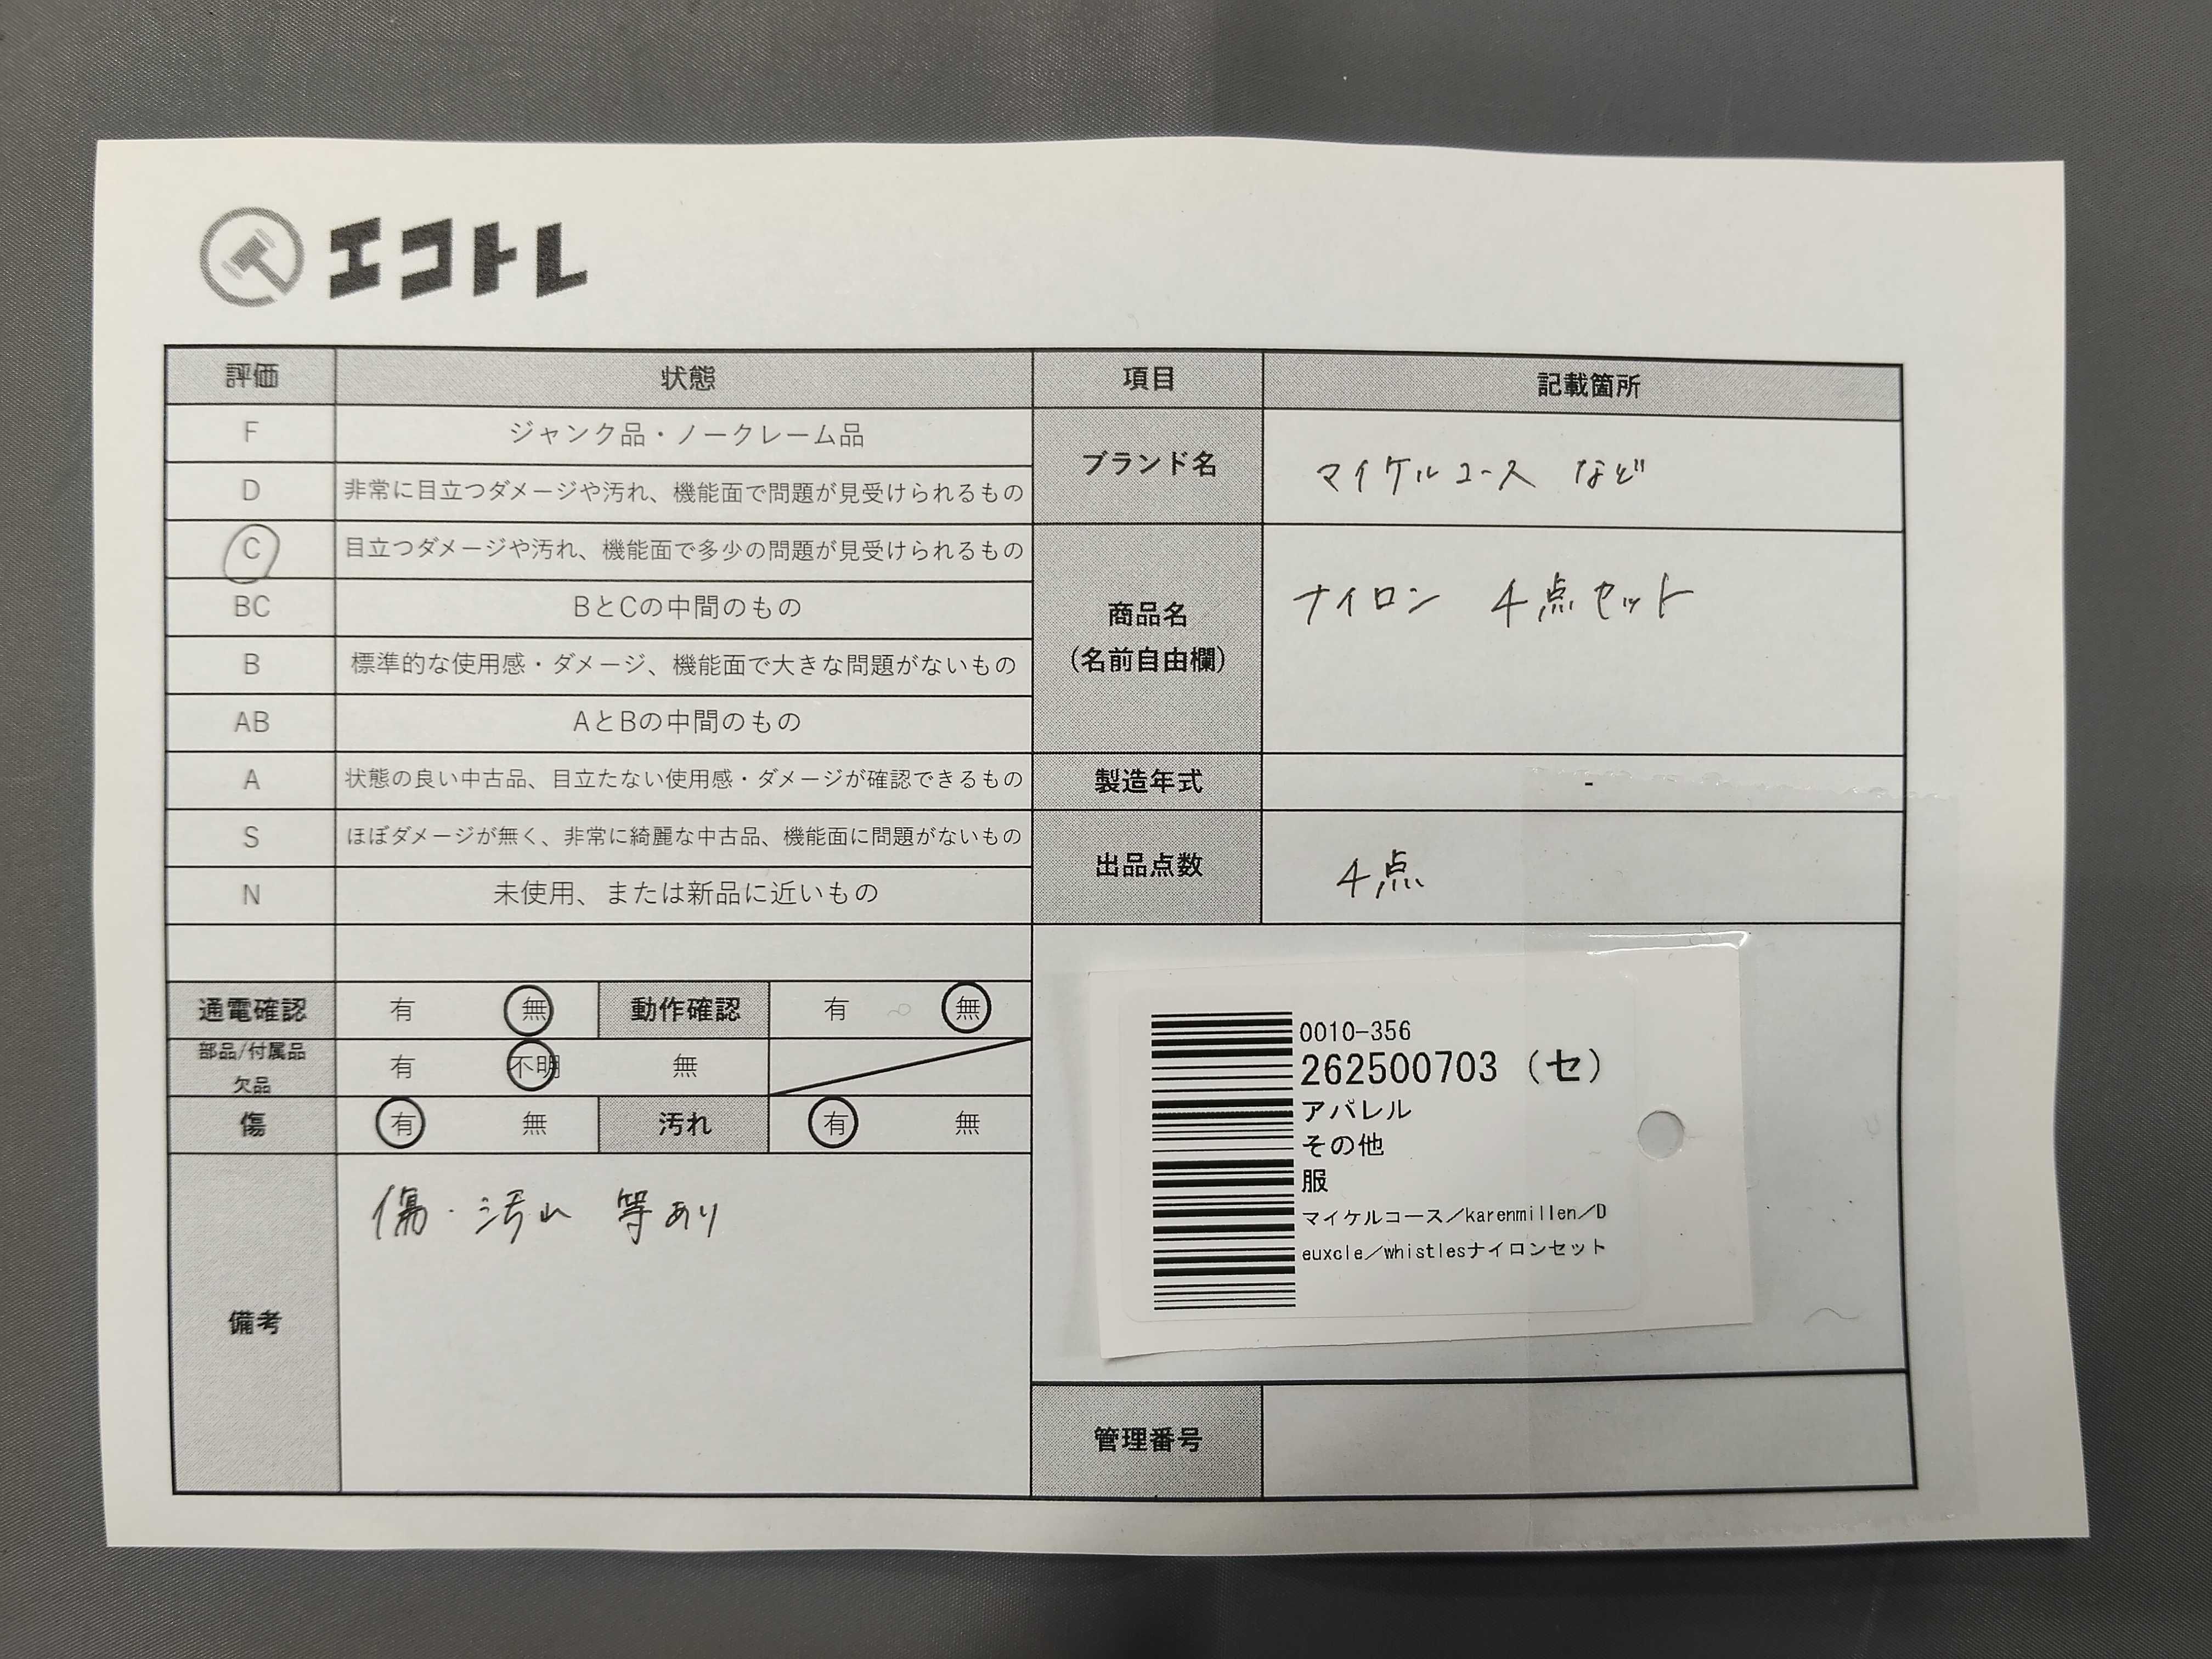 エコトレ
評価 状態 項目 記載箇所
F ジャンク品・ノークレーム品
D 非常に目立つダメージや汚れ、機能面で問題が見受けられるもの
C 目立つダメージや汚れ、機能面で多少の問題が見受けられるもの
BC BとCの中間のもの
B 標準的な使用感・ダメージ、機能面で大きな問題がないもの
AB AとBの中間のもの
A 状態の良い中古品、目立たない使用感・ダメージが確認できるもの
S ほぼダメージが無く、非常に綺麗な中古品、機能面に問題がないもの
N 未使用、または新品に近いもの
ブランド名 マイケルコース など
商品名 ナイロン 4点セット
(名前自由欄)
製造年式 -
出品点数 4点
通電確認 有 無 動作確認 有 無
部品/付属品 有 不明 無
欠品
傷 有 無 汚れ 有 無
備考 傷・汚れ 等あり
0010-356
262500703 (セ)
アパレル
その他
服
マイケルコース/karenmillen/D
euxcle/whistlesナイロンセット
管理番号